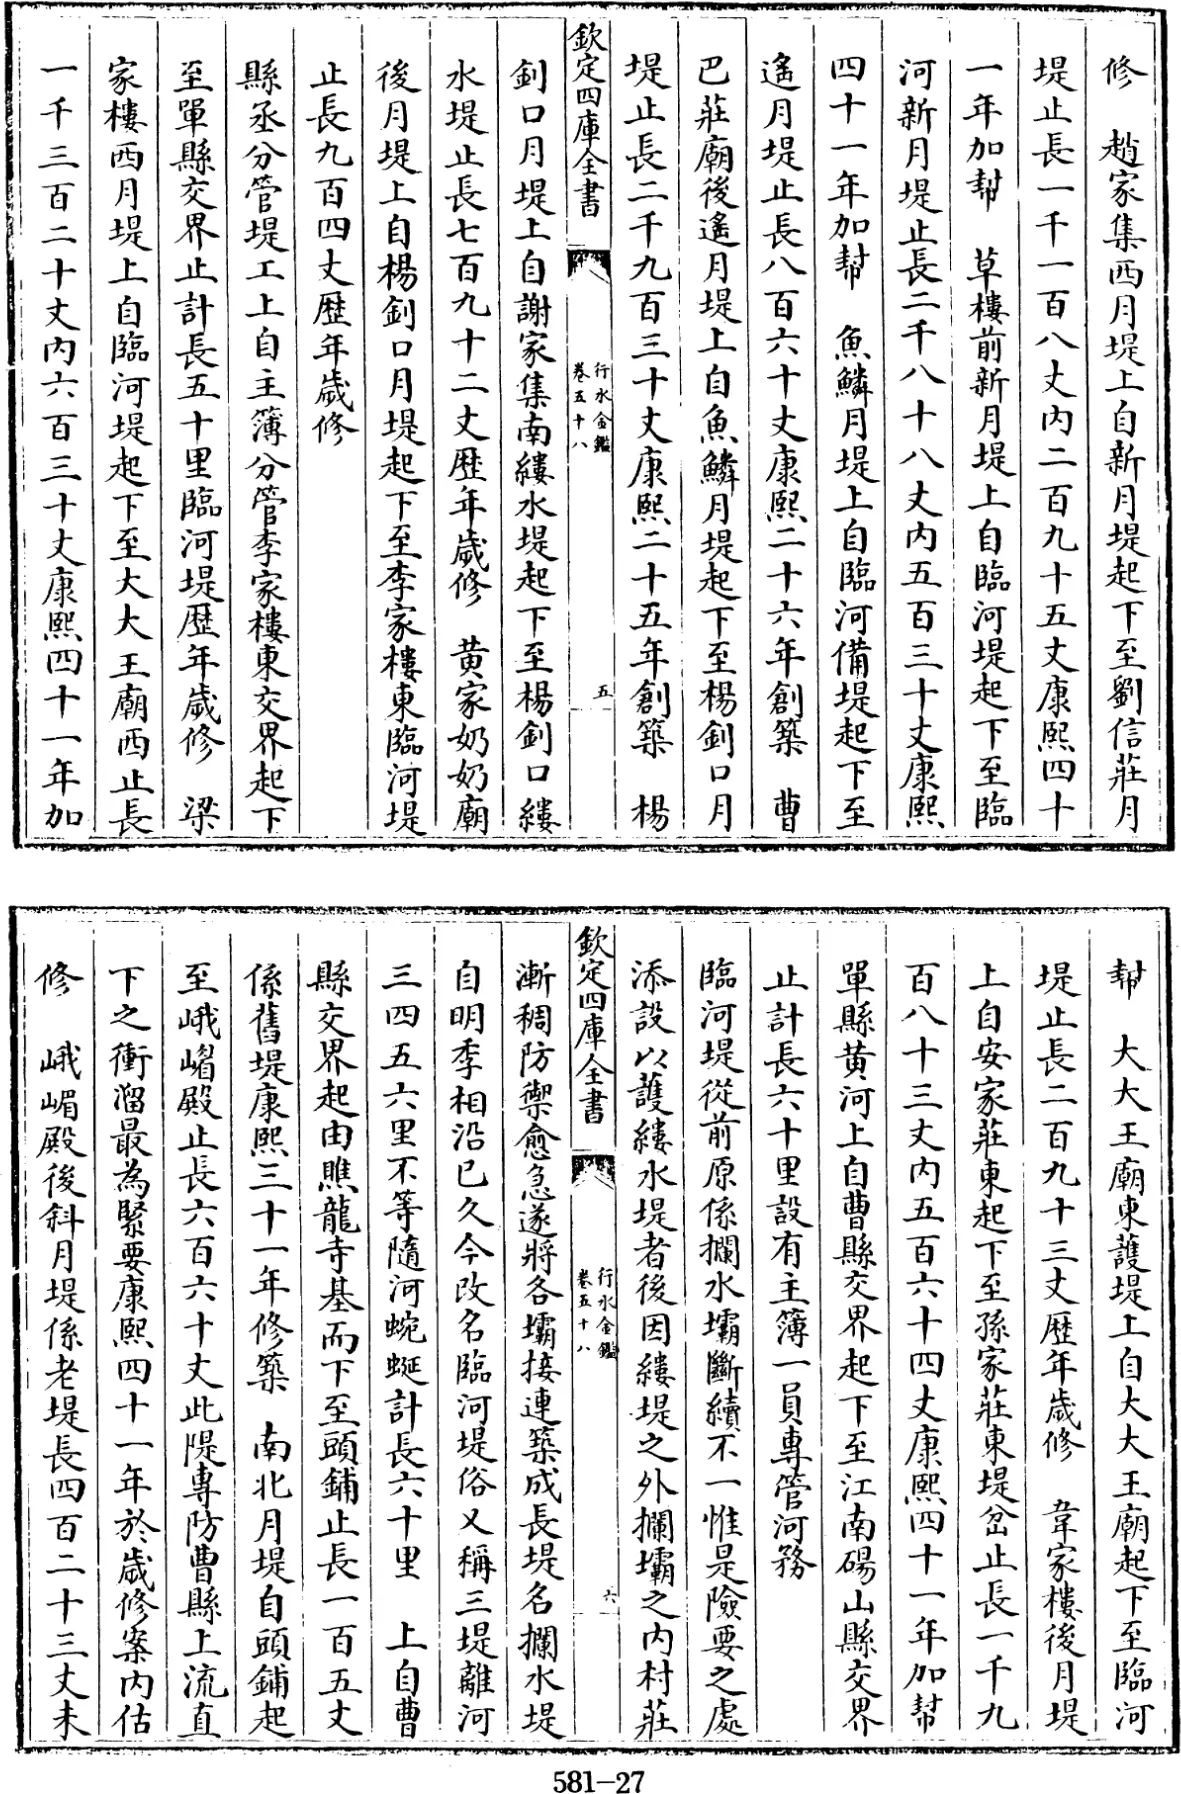 修　趙家集西月堤上自新月堤起下至劉信莊月
堤止長一千一百八丈內二百九十五丈康熙四十
一年加幇　草樓前新月堤上自臨河堤起下至臨
河新月堤止長二千八十八丈內五百三十丈康熙
四十一年加幇　魚鱗月堤上自臨河備堤起下至
遙月堤止長八百六十丈康熙二十六年創築　曹
巴莊廟後遙月堤上自魚鱗月堤起下至楊釗口月
堤止長二千九百三十丈康熙二十五年創築　楊
欽定四庫全書
行水金鑑
卷五十八
五
釗口月堤上自謝家集南縷水堤起下至楊釗口縷
水堤止長七百九十二丈歷年歲修　黄家奶奶廟
後月堤上自楊釗口月堤起下至李家樓東臨河堤
止長九百四丈歷年歲修
縣丞分管堤工上自主簿分管李家樓東交界起下
至單縣交界止計長五十里臨河堤歷年歲修　梁
家樓西月堤上自臨河堤起下至大大王廟西止長
一千三百二十丈內六百三十丈康熙四十一年加
幇　大大王廟東護堤上自大大王廟起下至臨河
堤止長二百九十三丈歷年歲修　韋家樓後月堤
上自安家莊東起下至孫家莊東堤岔止長一千九
百八十三丈內五百六十四丈康熙四十一年加幇
單縣黄河上自曹縣交界起下至江南碭山縣交界
止計長六十里設有主簿一員專管河務
臨河堤從前原係攔水壩斷續不一惟是險要之處
添設以護縷水堤者後因縷堤之外攔壩之內村莊
欽定四庫全書
行水金鑑
卷五十八
六
漸稠防禦愈急遂將各壩接連築成長堤名攔水堤
自明季相沿已久今改名臨河堤俗又稱三堤離河
三四五六里不等隨河蜿蜒計長六十里　上自曹
縣交界起由瞧龍寺基而下至頭鋪止長一百五丈
係舊堤康熙三十一年修築　南北月堤自頭鋪起
至峨嵋殿止長六百六十丈此隄專防曹縣上流直
下之衝溜最為緊要康熙四十一年於歲修案內估
修　峨嵋殿後斜月堤係老堤長四百二十三丈未
581-27